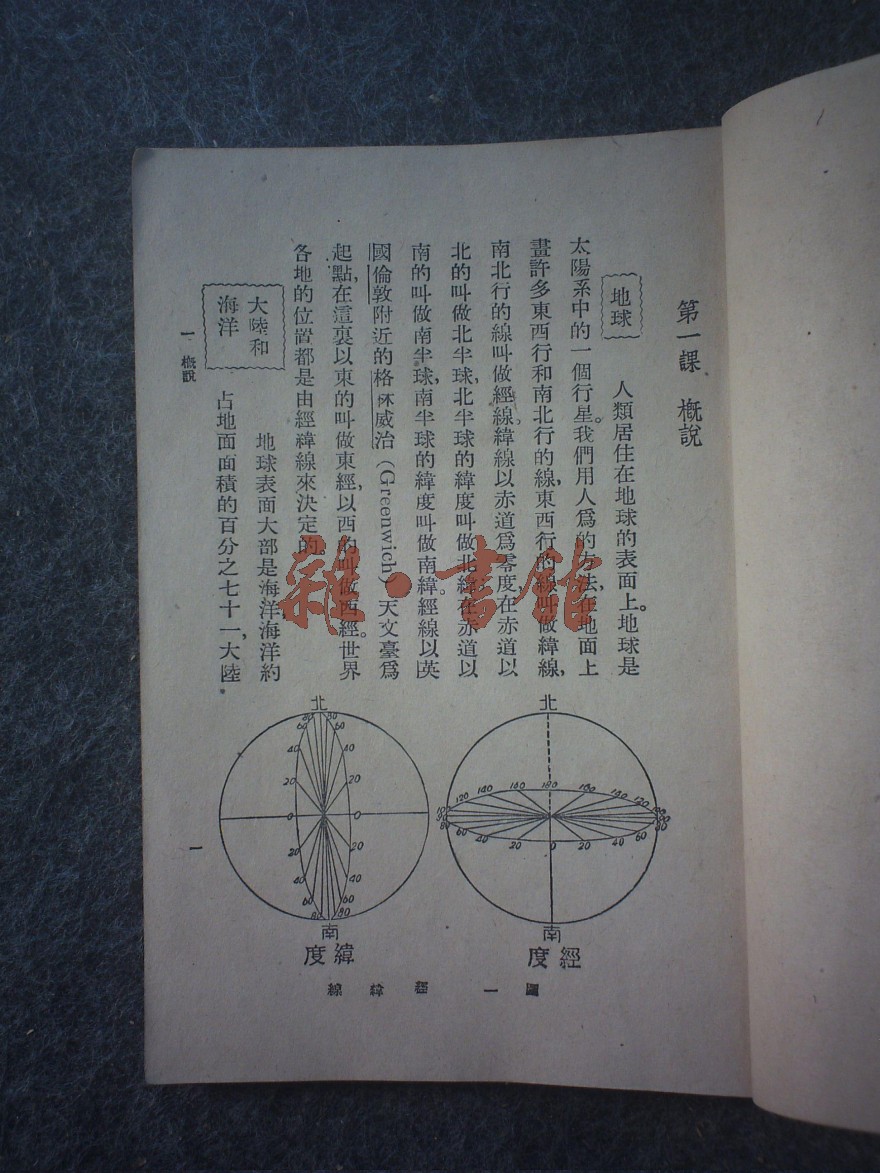 第一課　概說
地球
人類居住在地球的表面上。地球是
太陽系中的一個行星。我們用人爲的方法，在地面上
畫許多東西行和南北行的線，東西行的線叫做緯線，
南北行的線叫做經線。緯線以赤道爲零度，在赤道以
北的叫做北半球，北半球的緯度叫做北緯，在赤道以
南的叫做南半球，南半球的緯度叫做南緯。經線以英
國倫敦附近的格林威治（Greenwich）天文臺爲
起點，在這裏以東的叫做東經，以西的叫做西經。世界
各地的位置都是由經緯線來決定的。
大陸和
海洋
地球表面大部是海洋，海洋約
占地面面積的百分之七十一，大陸
一　概說
一
北
180
160 140 120
160 140 120
90
90
80
80
60 40 20 0 20 40 60
南
經度
北
80 80
60 60
40 40
20 20
0 0
20 20
40 40
60 60
80 80
南
緯度
圖一　經緯線
雜·書館